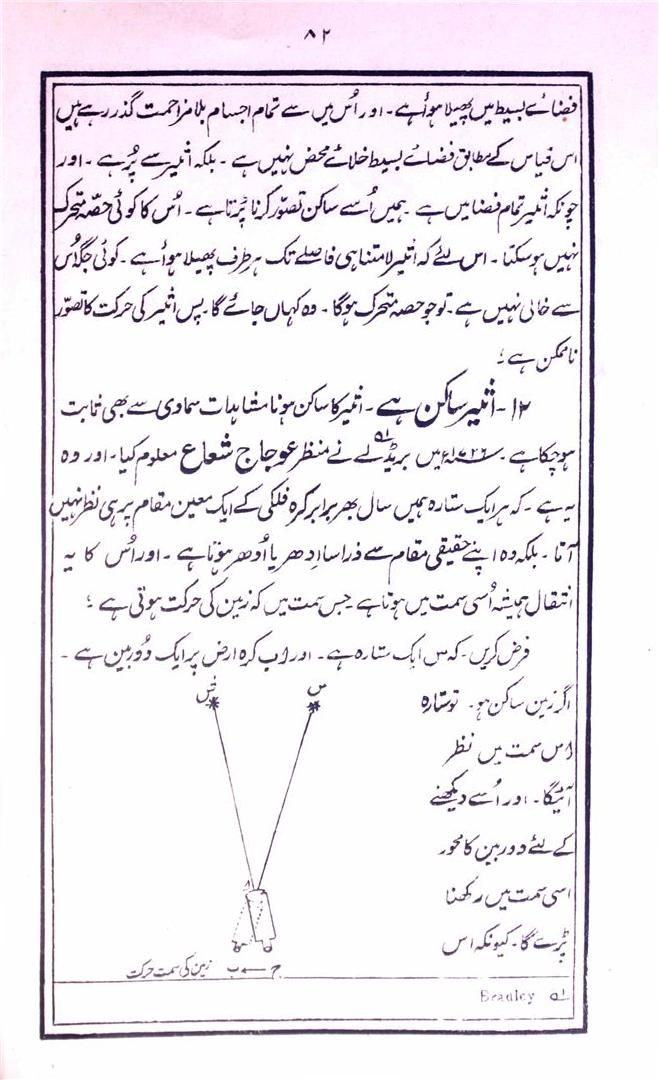 ۸۲
فضائے بسیط میں پھیلا ہوأ ہے۔ اور اُس میں سے تمام اجسام بلا مزاحمت گذر رہے ہیں
اس قیاس کے مطابق فضائے بسیط خلائے محض نہیں ہے۔ بلکہ اثیر سے پُر ہے۔ اور
چونکہ اثیر تمام فضا میں ہے ہمیں اُسے ساکن تصوّر کرنا پڑتا ہے۔ اُس کا کوئی حصّہ متحرک
نہیں ہو سکتا۔ اس لئے کہ اثیر لامتناہی فاصلے تک ہر طرف پھیلا ہوأ ہے۔ کوئی جگہ اُس
سے خالی نہیں ہے۔ تو جو حصہ متحرک ہوگا۔ وہ کہاں جائے گا۔ پس اثیر کی حرکت کا تصوّر
ناممکن ہے ؛
۱۲۔ اثیر ساکن ہے۔ اثیر کا ساکن ہونا مشاہدات سماوی سے بھی ثابت
ہو چکا ہے۔ ۱۷۲۶ء میں بریڈلے ؎۱ نے منظر عوجاج شعاع معلوم کیا۔ اور وہ
یہ ہے۔ کہ ہر ایک ستارہ ہمیں سال بھر برابر کرہ فلکی کے ایک معین مقام پر ہی نظر نہیں
آتا۔ بلکہ وہ اپنے حقیقی مقام سے ذرا سا اِدھر یا اُدھر ہوتا ہے۔ اور اُس کا یہ
انتقال ہمیشہ اُسی سمت میں ہوتا ہے جس سمت میں کہ زمین کی حرکت ہوتی ہے ؛
فرض کریں۔ کہ س ایک ستارہ ہے۔ اور اب کرہ ارض پر ایک دُوربین ہے۔
اگر زمین ساکن ہو۔ تو ستارہ
اس سمت میں نظر
آئیگا۔ اور اُسے دیکھنے
کے لئے دوربین کا محور
اسی سمت میں رکھنا
پڑے گا۔ کیونکہ اس
س
سَ
ا
ج ← ب زمین کی سمت حرکت
؎۱ Bradley